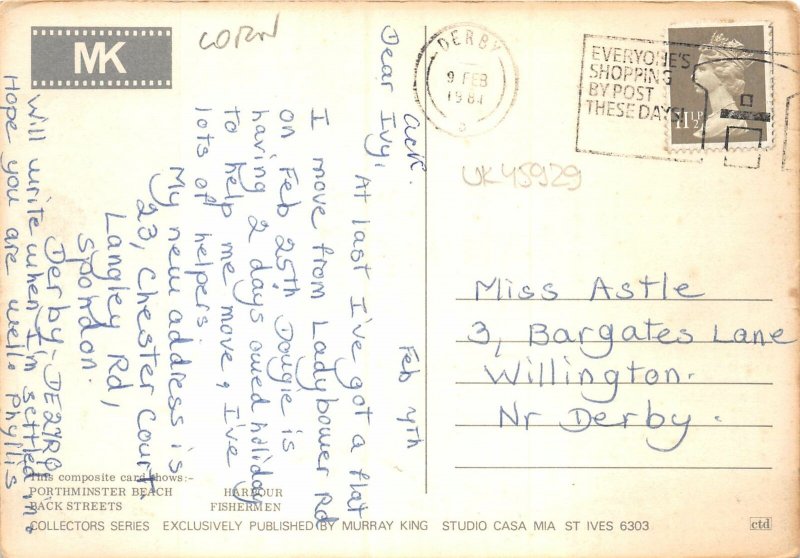 MK
CORN
DERBY
9 FEB
1981
EVERYONE'S
SHOPPING
BY POST
THESE DAYS!
11½P
UK45929
ack.
Feb 4th
Dear Ivy,
At last I've got a flat
I move from Ladybower Rd
on Feb 25th. Dougie is
having 2 days owed holiday
to help me move, I've
lots of helpers.
My new address is
23, Chester Court
Langley Rd,
Spondon.
Derby - DE27RP
Will write when I'm settled in.
Hope you are well. Phyllis
Miss Astle
3, Bargates Lane
Willington.
Nr Derby.
This composite card shows:-
PORTHMINSTER BEACH HARBOUR
BACK STREETS FISHERMEN
COLLECTORS SERIES EXCLUSIVELY PUBLISHED BY MURRAY KING STUDIO CASA MIA ST IVES 6303
ctd